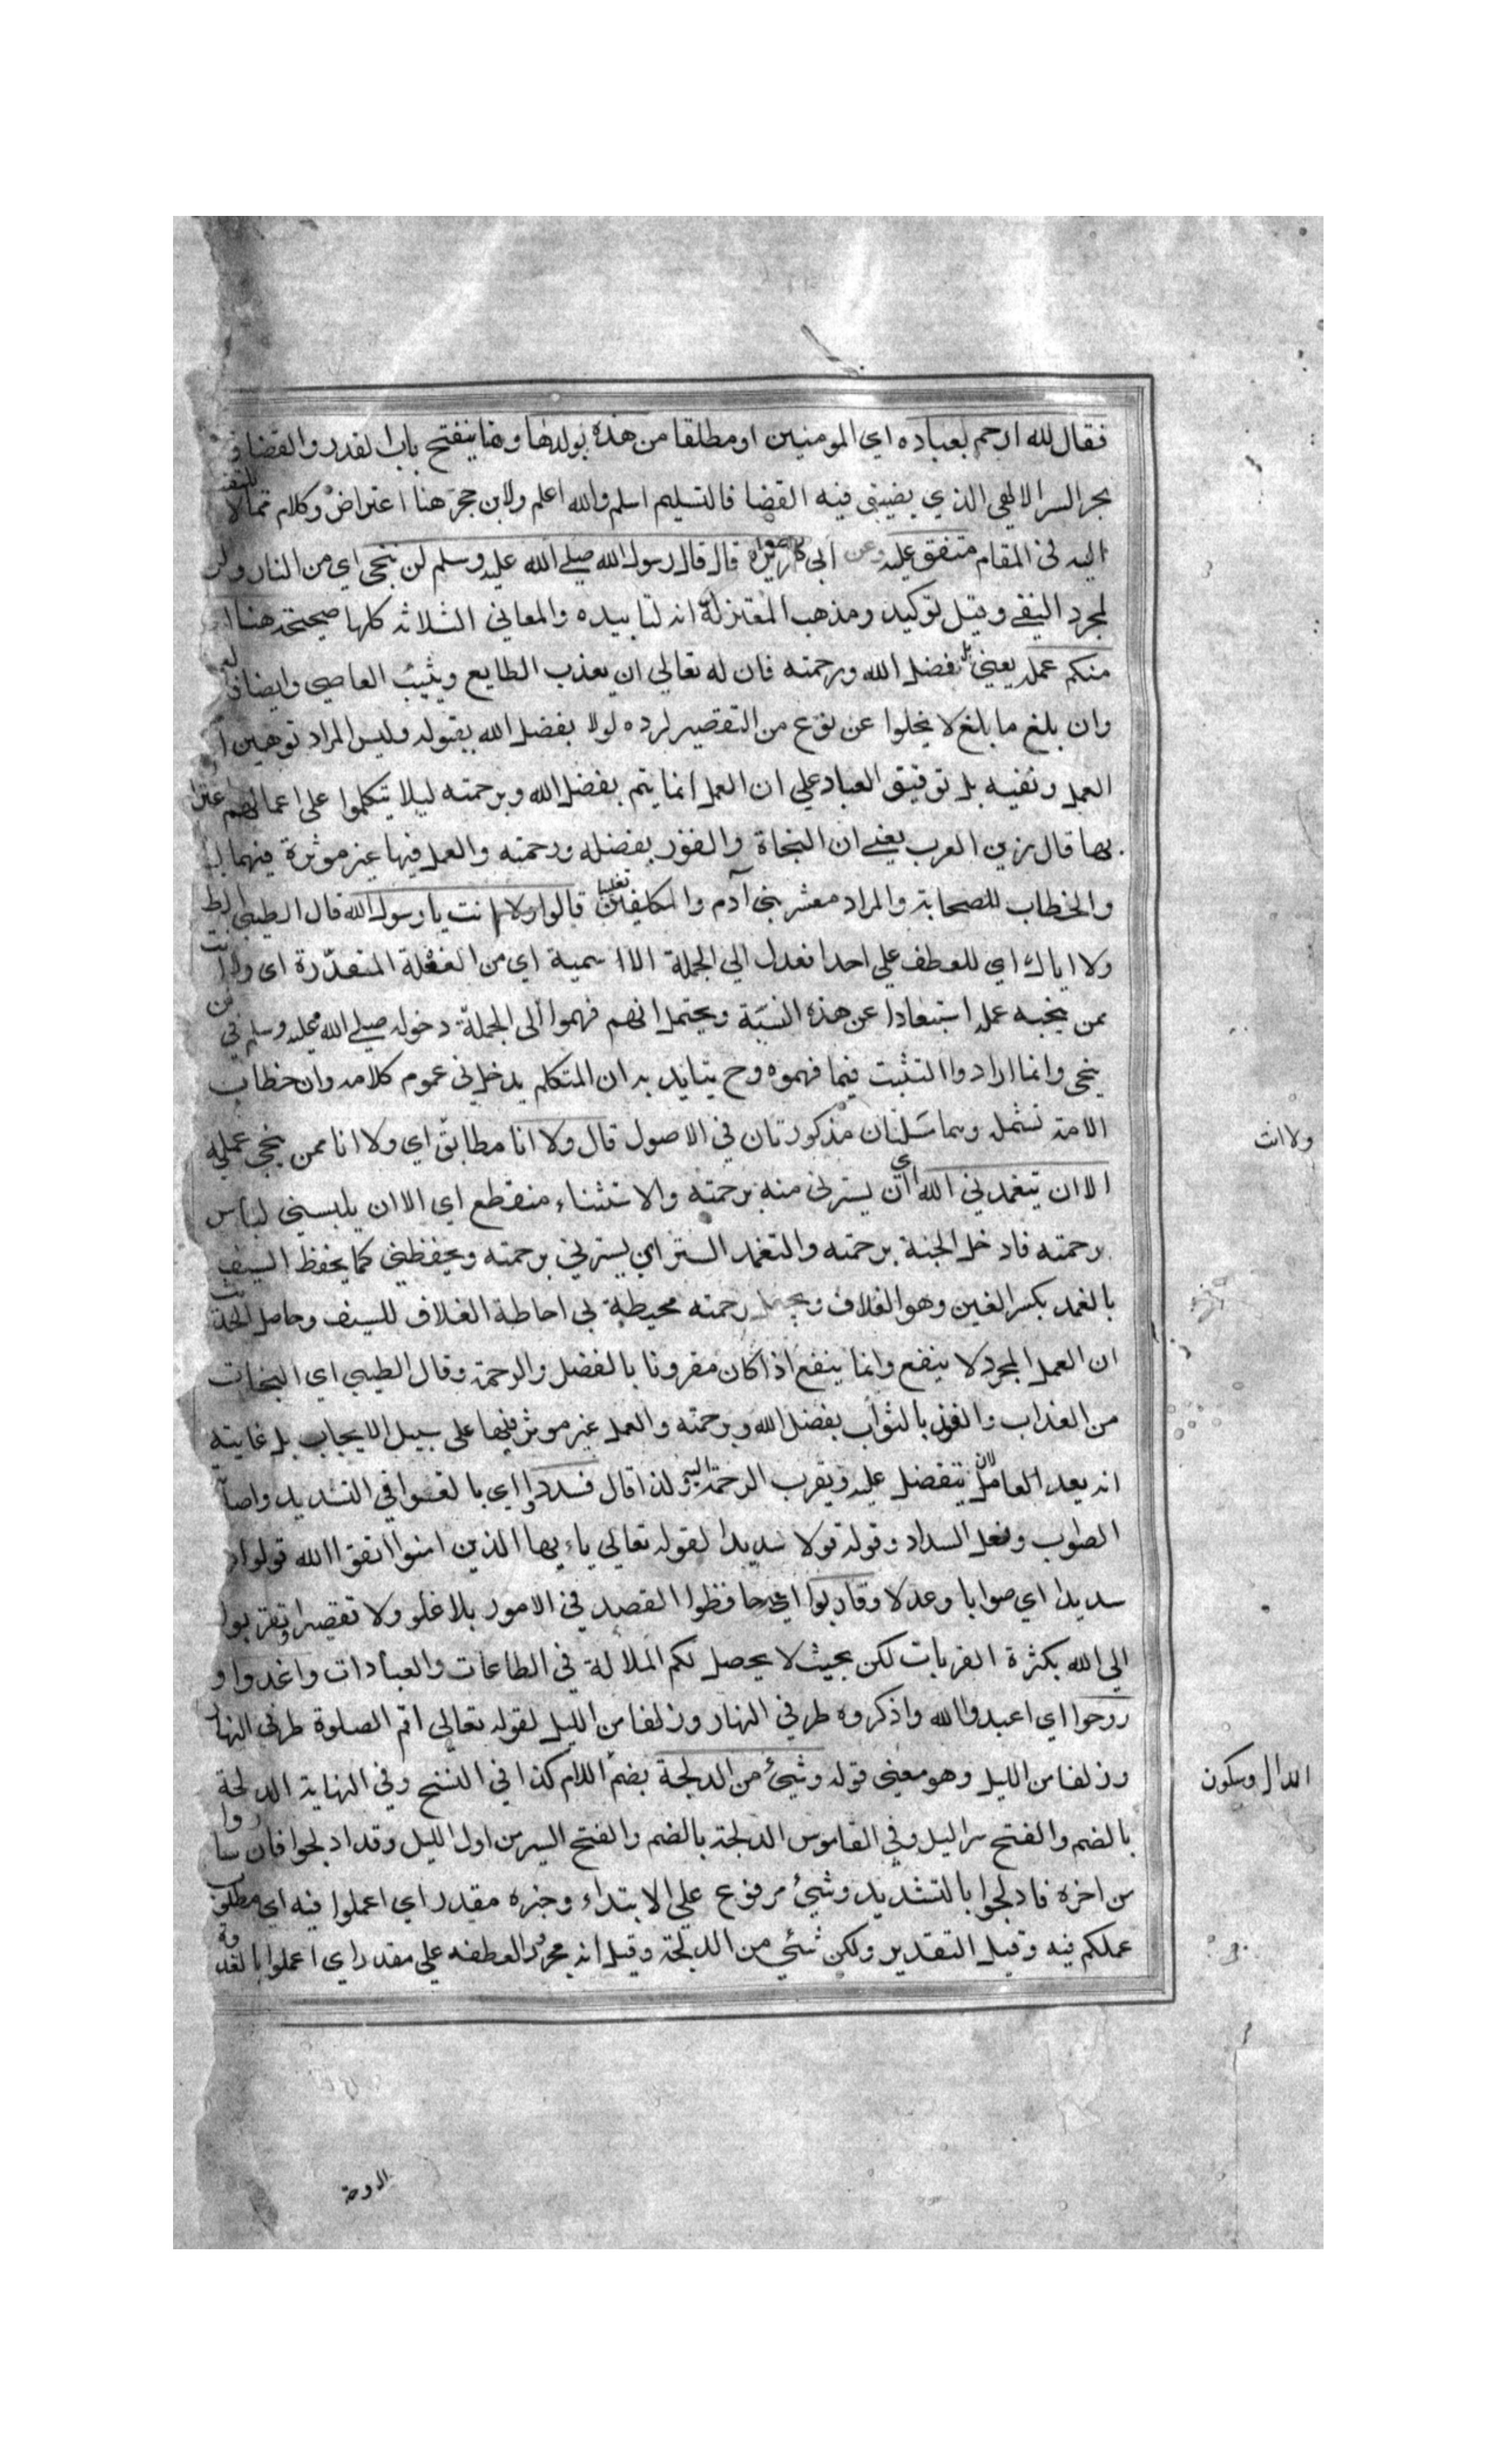 فقال لله ارحم بعباده اي المومنين او مطلقا من هذه بولدها وهنا ينفتح باب القدر والقضا و
بحر السر الالهي الذي يضيق فيه القضا فالتسليم اسلم والله اعلم ولابن حجر هنا اعتراض وكلام تمالا
اليه في المقام متفق عليه وعن ابي هريرة قال قال رسول الله صلي الله عليه وسلم لن ينجي اي من النار ولن
لمجرد النفي وقيل توكيد ومذهب المعتزلة انه لتابيده والمعاني الثلاثه كلها صحيحة هنا
منكم عمله يعني بل بفضل الله ورحمته فان له تعالي ان يعذب الطايع ويثيب العاصي وايضا
وان بلغ ما بلغ لا يخلوا عن نوع من التقصير لرده لولا بفضل الله بقبوله وليس المراد توهين
العمل ونفيه بل توفيق العباد علي ان العمل انما يتم بفضل الله وبرحمته ليلا يتكلموا علي اعمالهم
بها قال زين العرب يعني ان النجاة والفوز بفضله ورحمته والعمل فيها غير موثرة فيهما
والخطاب للصحابة والمراد معشر بني آدم والمكلفين تغليبا قالوا ولا انت يا رسول الله قال الطيبي
ولا اياك اي للعطف علي احدا فعدل الي الجملة الاسمية اي من الفعلة المتقدرة اي ولا انت
ممن ينجيه عمله استبعادا عن هذه النسبة ويحتمل انهم فهموا الي الجملة دخوله صلي الله عليه وسلم في
ينجي وانما ارادوا التثبت فيما فهموه وح يتايد به ان المتكلم يدخل في عموم كلامه وان خطاب
الامة تشمله وهما مسلتان مذكورتان في الاصول قال ولا انا مطابق اي ولا انا ممن ينجي عمله
ولا انت
الا ان يتغمدني الله اي ان يسترني منه برحمته والاستثناء منقطع اي الا ان يلبسني لباس
رحمته فادخل الجنة برحمته والتغمد الستر اي يسترني برحمته ويحفظني كما يحفظ السيف
بالغمد بكسر الغين وهو الغلاف ويجعل رحمته محيطة بي احاطة الغلاف للسيف وحاصل الحديث
ان العمل المجرد لا ينفع وانما ينفع اذا كان مقرونا بالفضل والرحمة وقال الطيبي اي النجات
من العذاب والفوز بالثواب بفضل الله وبرحمته والعمل غير موثر فيها علي سبيل الايجاب بل غايته
انه يعد العامل لان يتفضل عليه ويقرب الرحمة اليه ولذا قال فسددوا اي بالغوا في التسديد واصابة
الصواب وفعل السداد وقوله قولا سديدا لقوله تعالي يا ايها الذين امنوا اتقوا الله قولوا
سديدا اي صوابا وعدلا وقاربوا اي حافظوا القصد في الامور بلا غلو ولا تقصير او تقربوا
الي الله بكثرة القربات لكن بحيث لا يحصل لكم الملالة في الطاعات والعبادات واغدوا و
روحوا اي اعبدوالله واذكروه طرفي النهار وزلفا من الليل لقوله تعالي اقم الصلوة طرفي النهار
وزلفا من الليل وهو معني قوله وشيئ من الدلجة بضم اللام كذا في النسخ وفي النهاية الدلجة
الدال وسكون
بالضم والفتح سر اليل وفي القاموس الدلجة بالضم والفتح السير من اول الليل وقد ادلجوا فان ساروا
من اخره فادلجوا بالتشديد وشيئ مرفوع علي الابتداء وخبره مقدر اي اعملوا فيه اي مطلوب
عملكم فيه وقيل التقدير ولكن شئي من الدلجة وقيل انه مجرور لعطفه علي مقدر اي اعملوا بالغدوة
الروحة